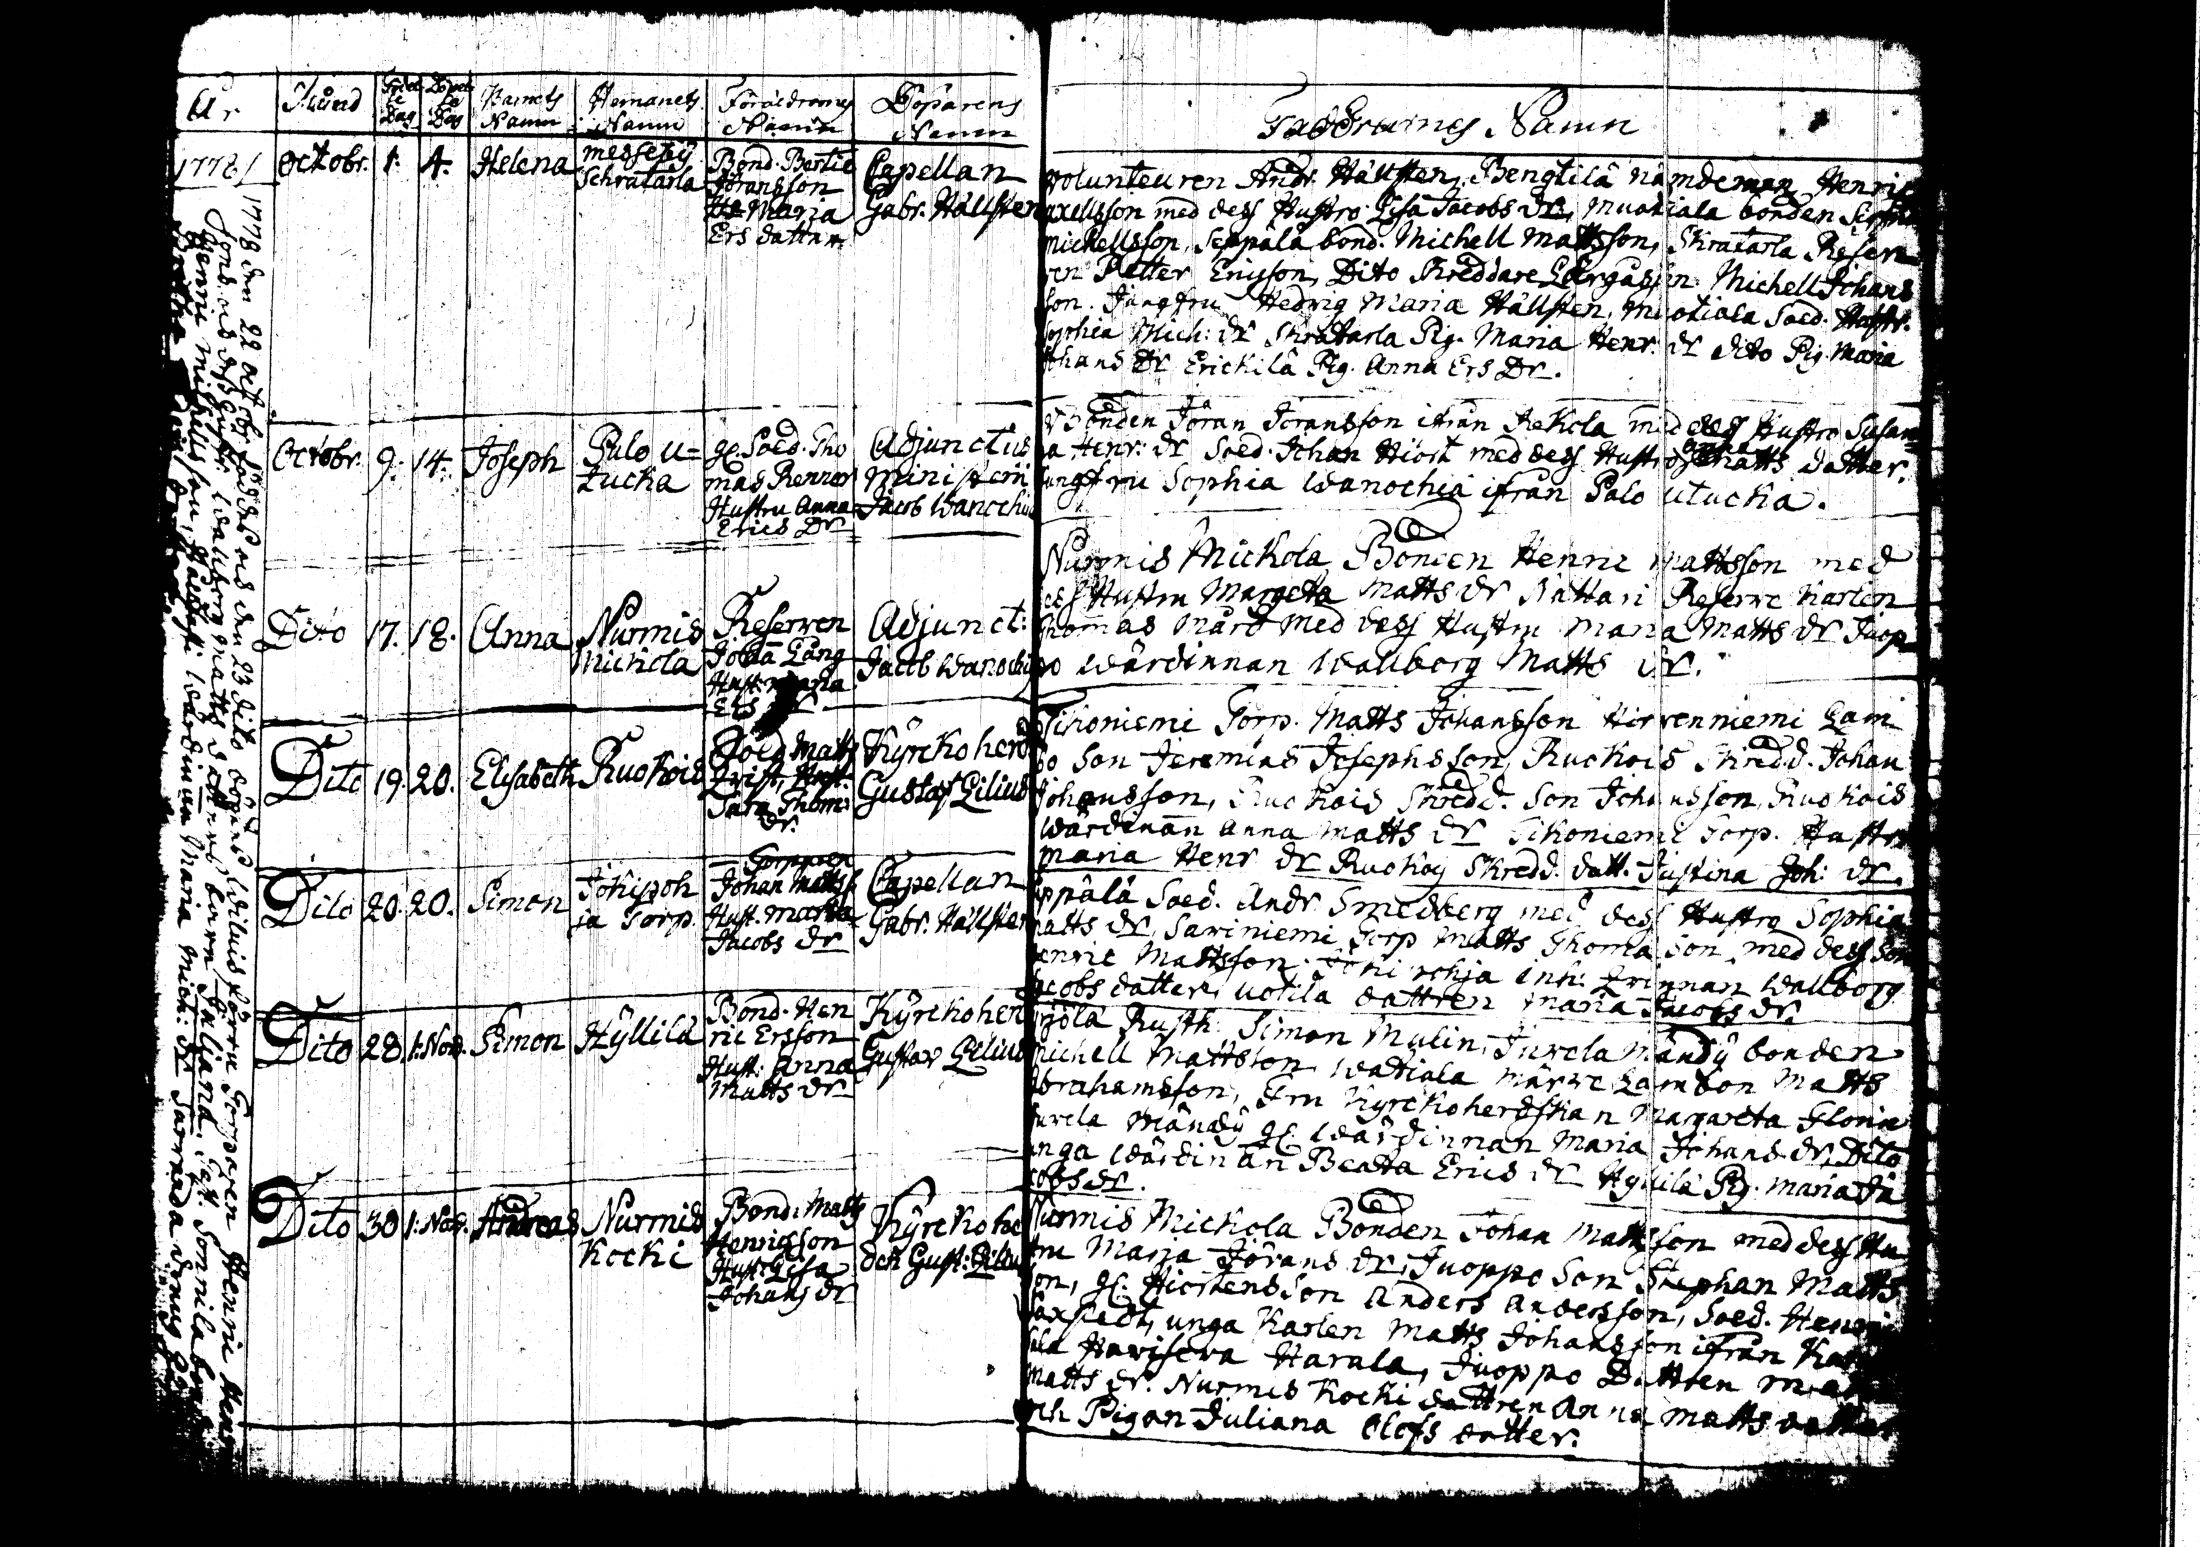 År
Månd
Födel
se
Dag
Döpel
se
Dag
Barnets
Namn
Hemanets
Namn
Föräldrarnes
Namn
Döparens
Namn
Faddrarnes Namn
1778
Octobr.
1.
4.
Helena
messeby
Schratarla
Bond. Bertil
Jöransson
Maria
Ers dattn
Capellan
Gabr. Hällsten
volunteuren Andr. Hällsten, Bengtilä nämdeman Henric
axellsson med dess Hustro Lisa Jacobs dr. muotiala bonden
michellsson, Seppälä bond. Michell Mattsson, Skratarla Reserv
ren Petter Ericsson, Dito Skreddare Michell Johans
son. Jungfru Hedvig Maria Hällsten, muotiala Soed. Hustr.
Sophia Mich: dr Skratarla Pig. Maria Henr: dr dito Pig. Maria
Johans Dr Erickilä Pig. Anna Ers Dr.
Octobr.
9.
14.
Joseph
Palo u=
tucka
gl. Soed. Tho
mas Renner
Hustru Anna
Erics Dr
Adjunctus
ministerii
Jacob Wanochius
Bonden Jöran Jöransson ifrån Rekola med dess Hustro Susan=
na Henr: dr Soed. Johan Hiort med dess Hustro Matts datter.
Jungfru Sophia Wanochia ifrån Palo utucka.
Dito
17.
18.
Anna
Nurmis
Mickola
Reserven
Joha Lång
Hust. maria
Ers dr
Adjunct:
Jacob Wanochi
Nurmis Mickola Bonden Henric Mattsson med
dess Hustru Margeta Matts dr Nattari Reserve Karlen
Thomas Mård med dess Hustru Maria Matts dr Juop
po Wärdinnan Wallborg Matts dr.
Dito
19.
20.
Elisabeth
Ruokois
Soed. Matts
Qvist, Hust.
Sara Thom:
dr.
Kyrckoherd
Gustaf Lilius
Tikoniemi Torp. Matts Johansson Hirvenniemi Lam
bo Son Jeremias Josephsson, Ruokois Skredd. Johan
Johansson, Ruokois Skredd. Son Johansson, Ruokois
Wärdinan Anna Matts dr Tikoniemi Torp. Hustru
maria Henr dr Ruokoy Skredd. datt. Justina Joh: dr.
Dito
20.
20.
Simon
Jokipoh
ja Torp.
Torpparen
Johan Mattss.
Hust. Maria
Jacobs dr
Capellan
Gabr. Hällsten
Seppälä Soed. Andr. Smedberg med dess Hustro Sophia
Matts dr, Sariniemi Torp Matts Thomasson, med dess son
Henric Mattsson, Jokipohja inh. Qvinnan Wallborg
Jacobs datter, Uotila dattren Maria Jacobs dr.
Dito
28.
1. Nov.
Simon
Hyllilä
Bond. Hen
ric Ersson
Hust: Anna
Matts dr
Kyrckoherd
Gustav Lilius
Rusth. Simon Malin, Jurvela Mändy bonden
Michell Mattsson Watiala Lambon Matts
Abrahamsson, Fru Kyrckoherdskan Margareta Florin
Jurvela Mändy gl. Wärdinnan Maria Johans dr, Dito
unga Wärdinan Beata Erics dr Hyllilä Pig. Maria Ja
cobs dr.
Dito
30
1. Nov.
Andreas
Nurmis
Kocki
Bond. Matts
Henricsson
Hust: Lisa
Johans dr
Kyrckohe
den Gust: Lilius
Nurmis Mickola Bonden Johan Mattsson med dess Hu
stru Marja Jörans dr, Juoppo Son Stephan Matts
son, gl. Son Anders Andersson, Soed.
unga Karlen Matts Johansson ifrån
Harala, Juoppo Dattren
Matts dr. Nurmis Kocki dattren Anna Matts datter
och Pigan Juliana Olofs datter.
1778 den 22 Octobr föddes och den 23 Dito döptes Torpparen Henric
Sons och dess Hustr. Wallborg Matts dotters barn Juliana. Test. Sonnila bond
Henric Michellsson, Wärdinnan Maria Mich: dr